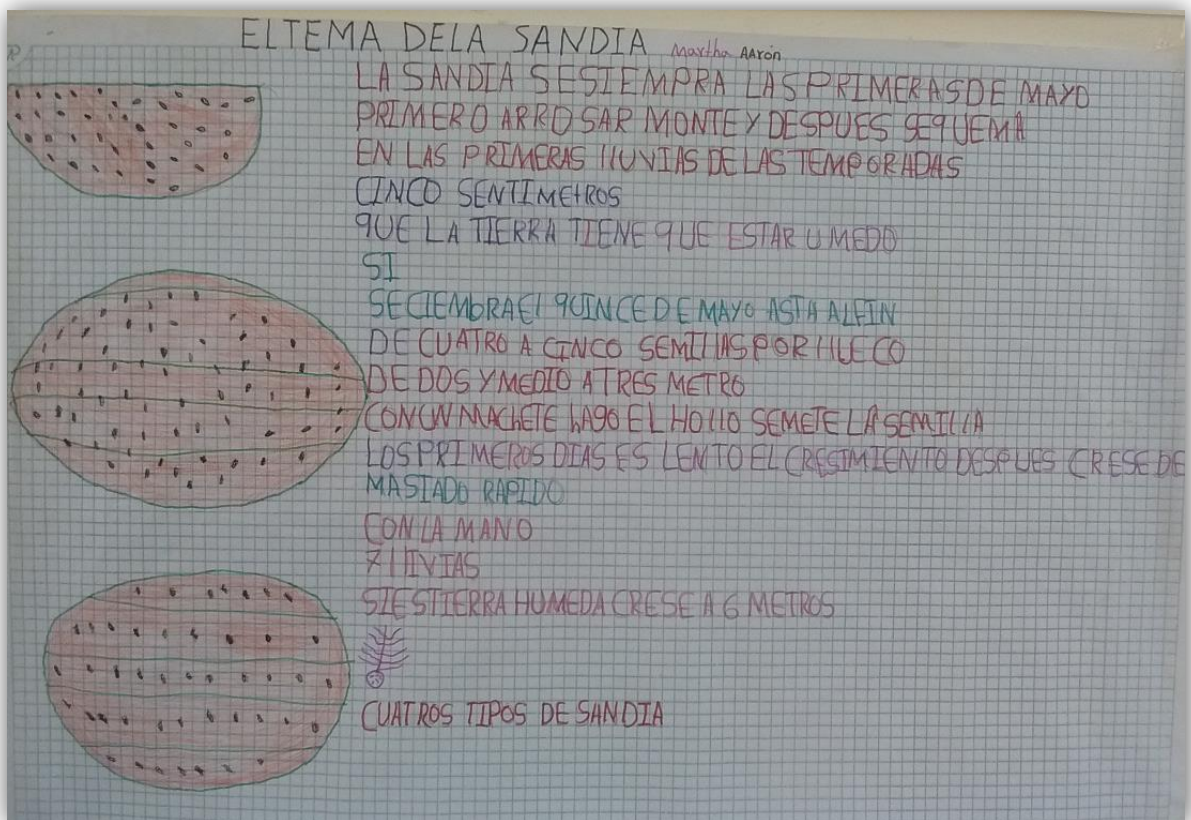 EL TEMA DE LA SANDIA Martha AArón
LA SANDIA SE SIEMPRA LAS PRIMERAS DE MAYO
PRIMERO ARROSAR MONTE Y DESPUES SE QUEMA
EN LAS PRIMERAS lluVIAS DE LAS TEMPORADAS
CINCO SENTIMEtROS
qUE LA TIERRA TIENE qUE ESTAR UMEDO
SI
SE CIEMBRA El qUINCE DE MAYO ASTA ALFIN
DE CUATRO A CINCO SEMIllAS POR HUECO
DE DOS Y MEDIO A TRES METRO
CON UN MACHETE hAgO EL HOllO SE METE LA SEMILlA
LOS PRIMEROS DIAS ES LENTO EL CRESIMIENTO DESPUES CRESE DE
MASIADO RAPIDO
CON LA MANO
7 llIVIAS
SI ES TIERRA HUMEDA CRESE A 6 METROS
CUATROS TIPOS DE SANDIA